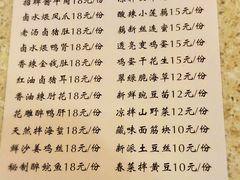 招牌酱牛肉18元/份
卤水煨凤爪18元/份
老汤卤猪肚18元/份
卤水煨鸭胗18元/份
香辣金钱肚18元/份
红油卤猪耳18元/份
香油辣肘花18元/份
花雕醉鸭肝18元/份
天然拌海蜇18元/份
鲜沙姜鸡丝18元/份
秘制醉鲩鱼18元/份
酸辣小莲藕15元/份
藕新丝连蜜15元/份
透亮蜜鸡蛋15元/份
鸡蛋干花生15元/份
翠绿脆海草12元/份
新鲜豌豆苗12元/份
凉拌山野菜12元/份
藏味面筋块10元/份
新派土豆丝10元/份
春菜拌黄豆10元/份